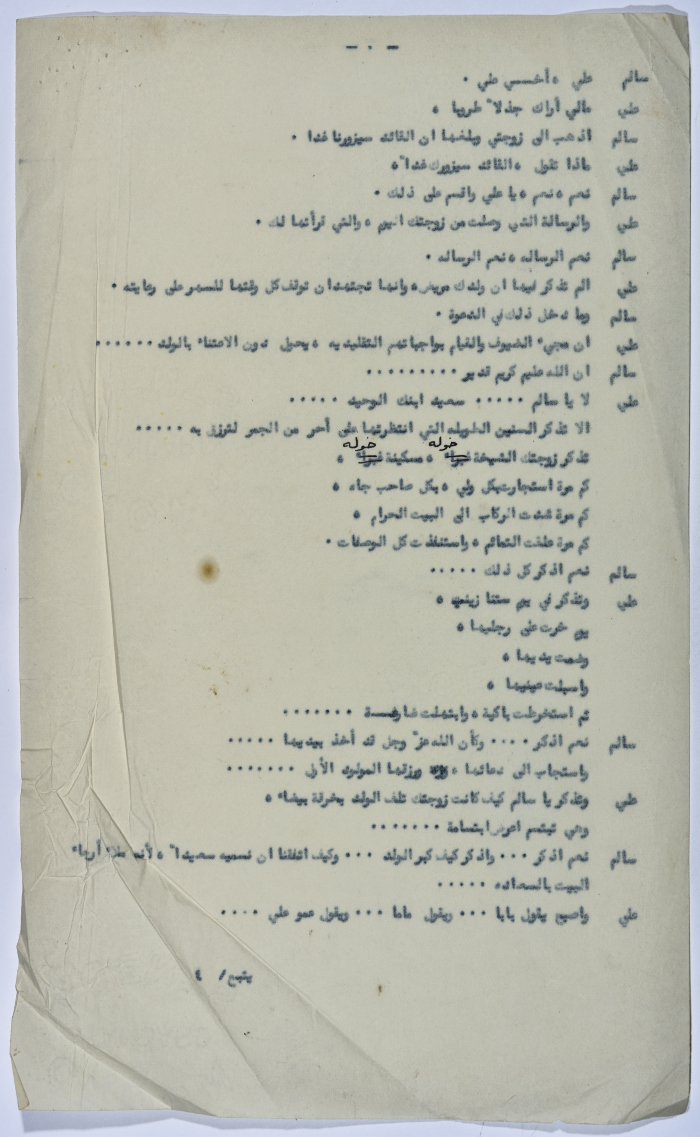 - ٠ -
سالم علي ٥ أخسسي علي ٠
علي مالي أراك جذلا" طروبا ٥
سالم اذهب الى زوجتي وبلغها ان القائد سيزورنا غدا ٠
علي ماذا تقول ٥ القائد سيزورك غدا" ٥
سالم نعم ٥ نعم ٥ يا علي واقسم على ذلك ٠
علي والرسالة التي وصلت من زوجتك اليوم ٥ والتي قرأتها لك ٠
سالم نعم الرساله ٥ نعم الرساله ٠
علي الم تذكر فيها ان ولدك مريض ٥ وانها تجتهد ان توقف كل وقتها للسهر على رعايته ٠
سالم وما دخل ذلك في الدعوة ٠
علي ان مجيء الضيوف والقيام بواجباتهم التقليديه ٥ يحول دون الاعتناء بالولد ٠٠٠٠٠٠
سالم ان الله عليم كريم قدير ٠٠٠٠٠٠٠٠٠
علي لا يا سالم ٠٠٠٠٠ سعيد ابنك الوحيد ٠٠٠٠٠
الا تذكر السنين الطويله التي انتظرتها على أحر من الجمر لترزق به ٠٠٠٠٠
تذكر زوجتك الشيخة خوله ٥ مسكينة خوله ٥
كم مرة استجارت بكل ولي ٥ بكل صاحب جاه ٥
كم مرة شدت الركاب الى البيت الحرام ٥
كم مرة علقت التمائم ٥ واستنفذت كل الوصفات ٠
سالم نعم اذكر كل ذلك ٠٠٠٠٠
علي وتذكر في يوم ستنا زينب ٥
يوم خرت على رجليها ٥
وضمت يديها ٥
واسبلت عينيها ٥
ثم استخرطت باكية ٥ وابتهلت ضارعة ٠٠٠٠٠٠٠
سالم نعم اذكر ٠٠٠٠ وكأن الله عز" وجل قد أخذ بيديها ٠٠٠٠٠
واستجاب الى دعائها ٥ ورزقها المولود الأول ٠٠٠٠٠٠٠
علي وتذكر يا سالم كيف كانت زوجتك تلف الولد بخرقة بيضاء ٥
وهي تبتسم اعرض ابتسامة ٠٠٠٠٠٠٠
سالم نعم اذكر ٠٠٠ واذكر كيف كبر الولد ٠٠٠ وكيف اتفقنا ان نسميه سعيدا" ٥ لأنه ملأ أرجاء
البيت بالسعاده ٠٠٠٠٠
علي واصبح يقول بابا ٠٠٠ ويقول ماما ٠٠٠ ويقول عمو علي ٠٠٠٠
يتبع/ ٤